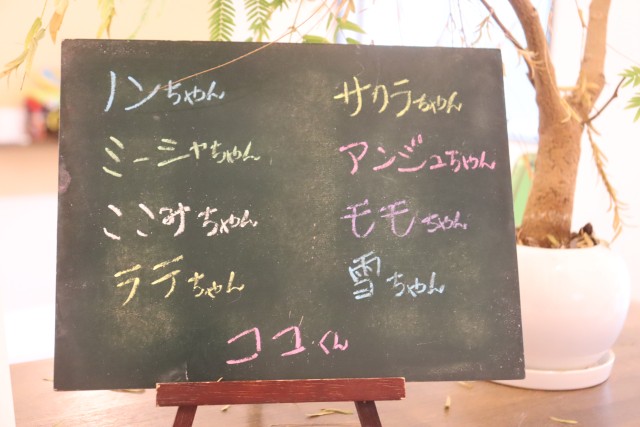 ノンちゃん
ミーシャちゃん
ここみちゃん
ラテちゃん
サクラちゃん
アンジュちゃん
モモちゃん
雪ちゃん
ココくん